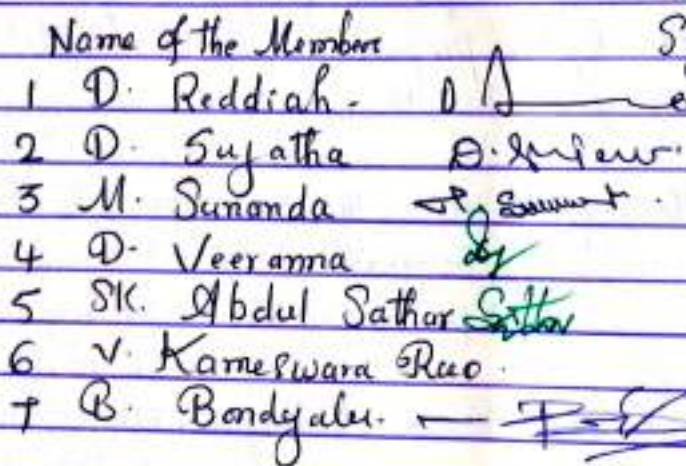 Name of the Members S
1 D. Reddiah.
2 D. Sujatha
3 M. Sunanda
4 D. Veeranna
5 SK. Abdul Sathar
6 V. Kameswara Rao.
7 B. Bondyalu.